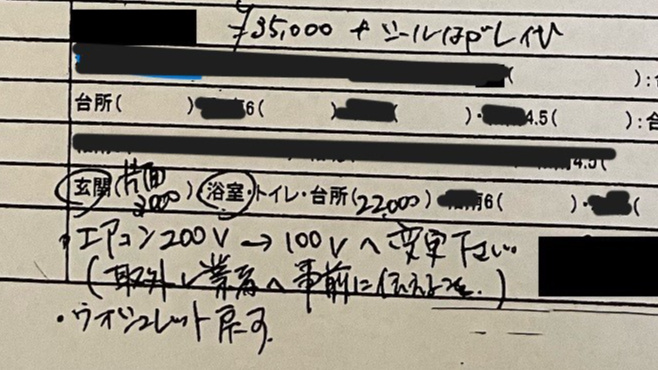 ¥35,000 + シールはがし代
( ):台
台所( ) 6( ) ( )・ 4.5( ):台
4.5(
玄関(片面2000) 浴室・トイレ・台所(22,000) 6( )・ (
・エアコン200V→100Vへ変更下さい.
(取外し業者へ事前に伝える
・ウオシュレット戻す.